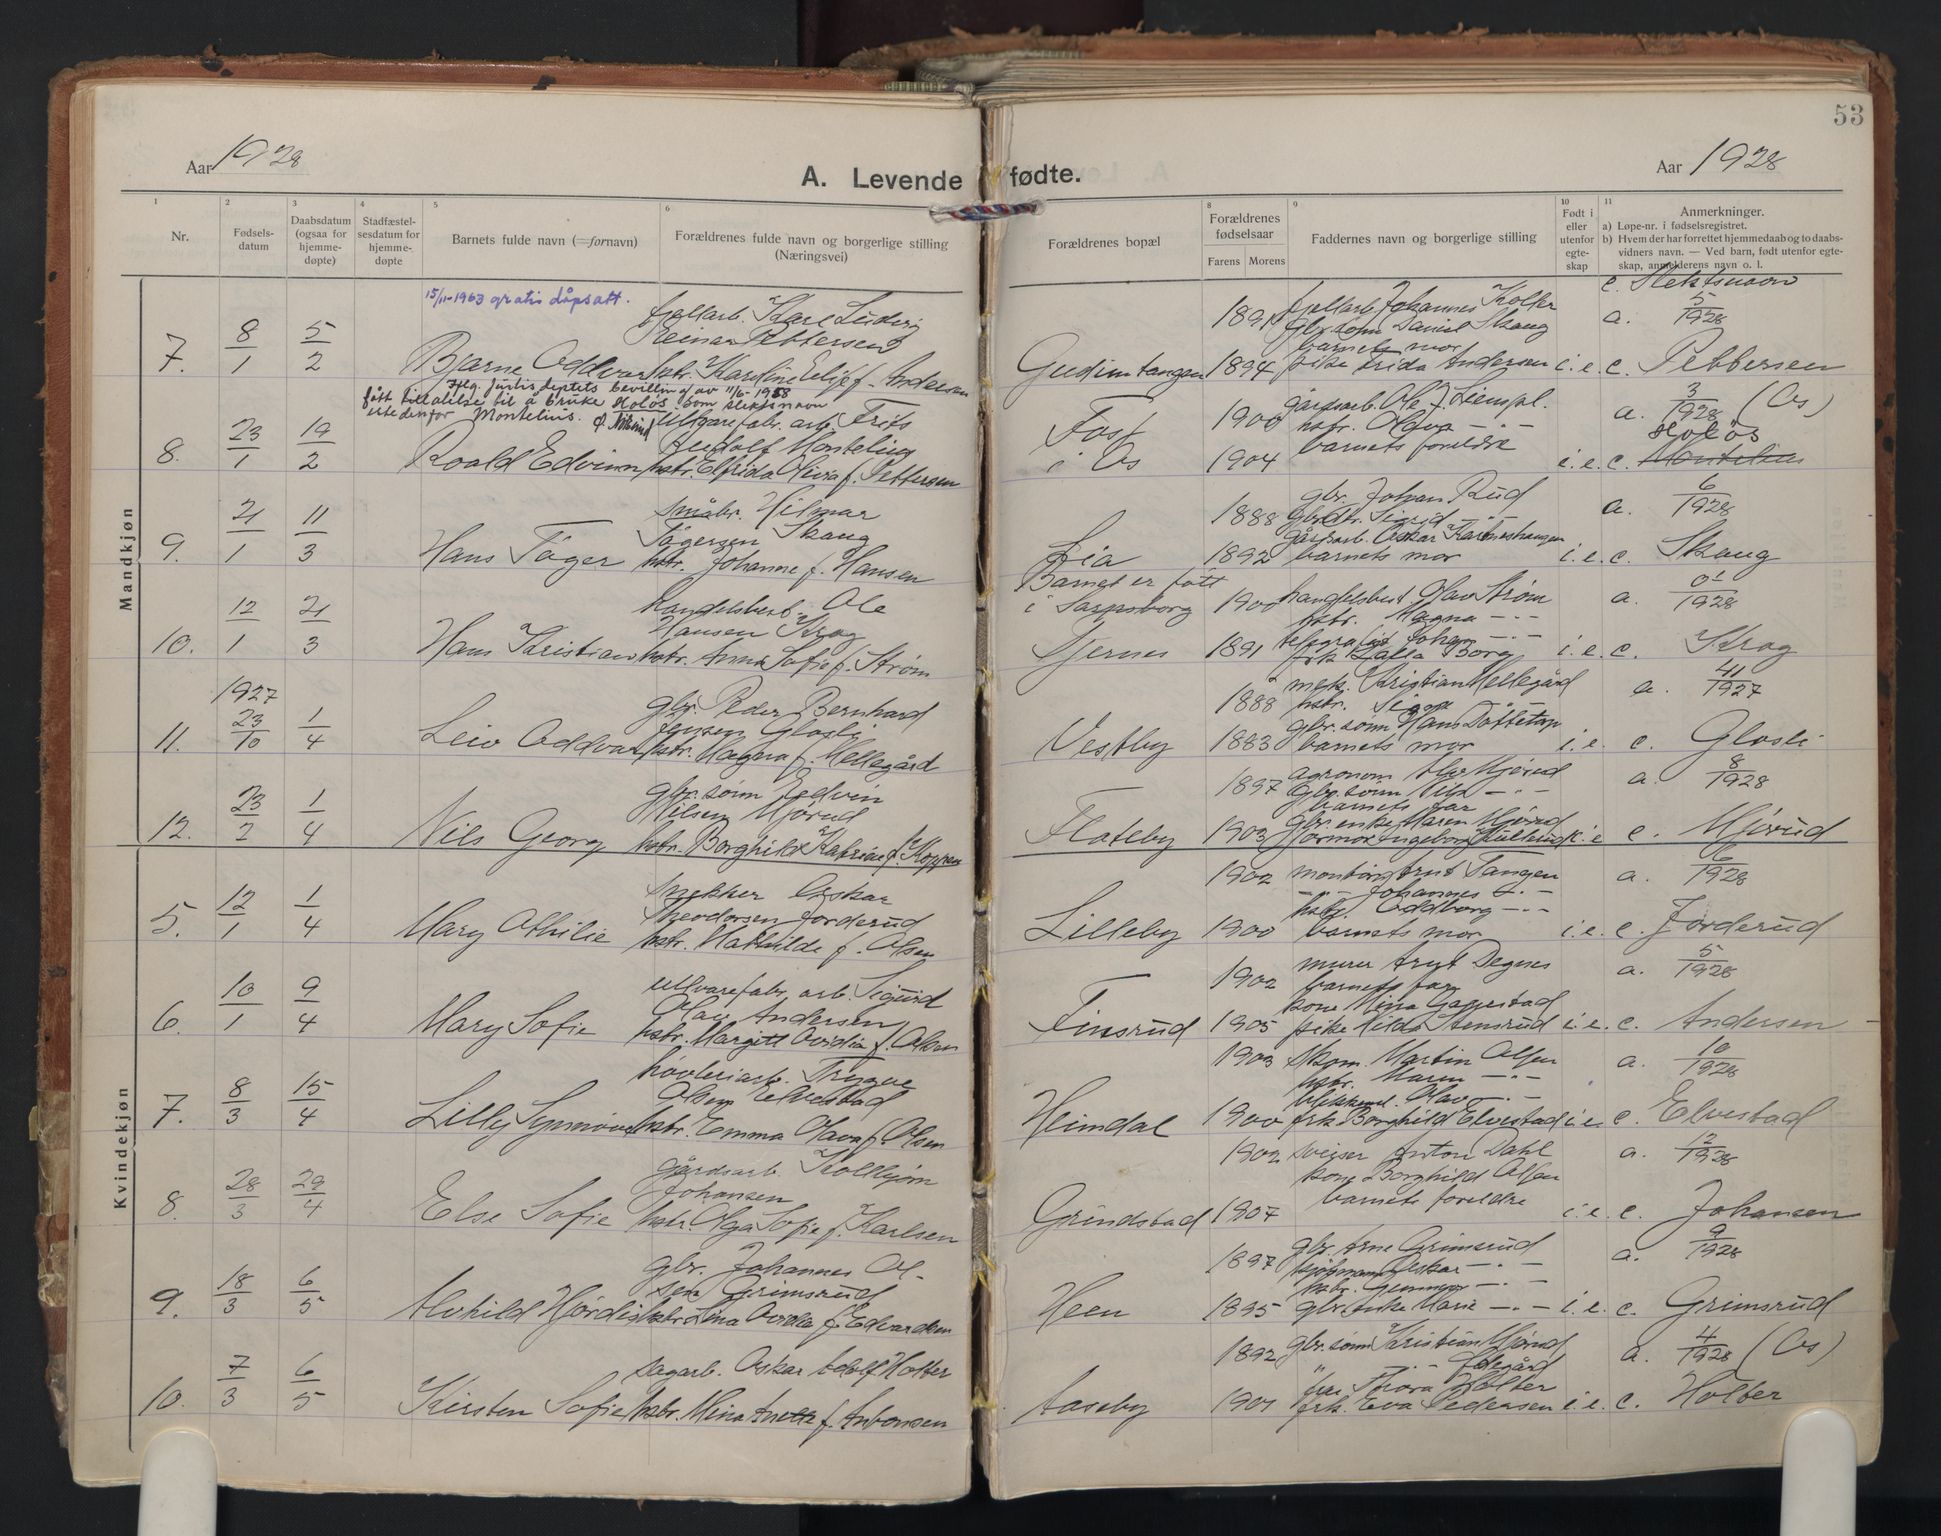 53
Aar 1928
A. Levende fødte.
Aar 1928
1 Nr.
2 Fødsels-datum
3 Daabsdatum (ogsaa for hjemme-døpte)
4 Stadfæstel-sesdatum for hjemme-døpte
5 Barnets fulde navn (=fornavn)
6 Forældrenes fulde navn og borgerlige stilling (Næringsvei)
Forældrenes bopæl
8 Forældrenes fødselsaar
Farens Morens
9 Faddernes navn og borgerlige stilling
10 Født i eller utenfor egte-skap
11 Anmerkninger.
a) Løpe-nr. i fødselsregistret.
b) Hvem der har forrettet hjemmedaab og to daabs-vidners navn. — Ved barn, født utenfor egte-skap, anmelderens navn o. l.
Mandkjøn
15/11-1963 gratis dåpsatt.
fjellarb. Karl Ludvig
Reinar Pettersen
7. 8/1 5/2 Bjarne Oddvar hstr. Karoline Eelije f. Andersen
Gudimtangen 1891 1894
fjellarb. Johannes Kolter
gbr. sønn Daniel Skaug
barnets mor
pike Frida Andersen
i.e. c. Slektsnavn
a. 5/1928
c. Pettersen
Iflg. Justisdeptets bevilling av 11/6-1958
fått tillatelse til å bruke Holøs som slektsnavn
istedenfor Montelius.
ullvarefabr. arb. Frits
Rudolf Montelius
8. 23/1 19/2 Roald Edvinn hstr. Elfrida Olivia f. Pettersen
Fost i Os 1900 1904
gårdsarb. Ole J. Liempl.
hstr. Olava -"-
barnets foreldre
i.e. c. Montelius
a. 3/1928 (Os)
Holøs
småbr. Hilmar
Jägersen Skaug
9. 21/1 11/3 Hans Jäger hstr. Johanne f. Hansen
Lia 1888 1892
gbr. Johan Rud
gbr.dtr. Sigrid -"-
gårdsarb. Oskar
barnets mor
i.e. c. Skaug
a. 6/1928
handelsbest. Ole
Hansen Krog
10. 12/1 21/3 Hans Kristian hstr. Anna Sofie f. Strøm
Barnet er født
i Sarpsborg
Tjernes 1900 1891
handelsbest Olav Strøm
hstr. Magna -"-
telegrafist Johan -"-
frk Lalla Borg
i.e. c. Krog
a. 01/1928
1927
gbr. Peder Bernhard
Jensen Glosli
11. 23/10 1/4 Leiv Oddvar hstr. Magna f. Mellegård
Vestby 1888 1883
mek. Kristian Mellegård
hstr. Signe
gbr. sønn Hans Dåttetop
barnets mor
i.e. c. Glosli
a. 41/1927
gbr. sønn Edvin
Nilsen Mjørud
12. 23/2 1/4 Nils Georg hstr. Borghild Katrine f. Koppen
Flateby 1897 1903
agronom Alv Mjørud
gbr. sønn Nils -"-
barnets far
gbr. enke Maren Mjørud
jormor Ingeborg
i.e c. Mjørud
a. 8/1928
Kvindekjøn
snekker Oskar
Theodorsen Jorderud
5. 12/1 1/4 Mary Othilie hstr. Mathilde f. Olsen
Lilleby 1902 1900
montør Arnt Tangen
-"- Johannes -"-
hstr. Oddborg -"-
barnets mor
i.e. c. Jorderud
a. 6/1928
ullvarefabr. arb. Sigurd
Olav Andersen
6. 10/1 9/4 Mary Sofie hstr. Margitt Ovidia f. Olsen
Finsrud 1902 1905
murer Aryt Degnes
barnets far
kone Mina Gappestad
pike Hilda Stensrud
i.e. c. Andersen
a. 5/1928
høvleriarb. Trygve
Olsen Elvestad
7. 8/3 15/4 Lilly Synnøve hstr. Emma Olava f. Olsen
Heimdal 1903 1900
skom. Martin Olsen
hstr. Maren -"-
blikkensl. Olav -"-
frk Borghild Elvestad
i.e. c. Elvestad
a. 10/1928
gårdsarb. Kolbjørn
Johansen
8. 28/3 29/4 Else Sofie hstr. Olga Sofie f. Karlsen
Grindstad 1902 1907
sveiser Anton Dahl
kone Borghild Olsen
barnets foreldre
i.e. c. Johansen
a. 12/1928
gbr. Johannes Ol-
sen Grimsrud
9. 18/3 6/5 Alvhild Hjørdis hstr. Lina Ovidia f. Edvardsen
Heen 1897 1895
gbr. Arne Grimsrud
sjømann Oskar -"-
hstr. Gunnvor -"-
gbr. enke Marie -"-
i.e. c. Grimsrud
a. 9/1928
sagarb. Oskar Adolf Holter
10. 7/3 6/5 Kirsten Sofie hstr. Mina Anette f. Antonsen
Aaseby 1892 1901
gbr. sønn Kristian Mjørud
fru Thora Holter
frk. Eva Pedersen
i.e. c. Holter
a. 4/1928 (Os)